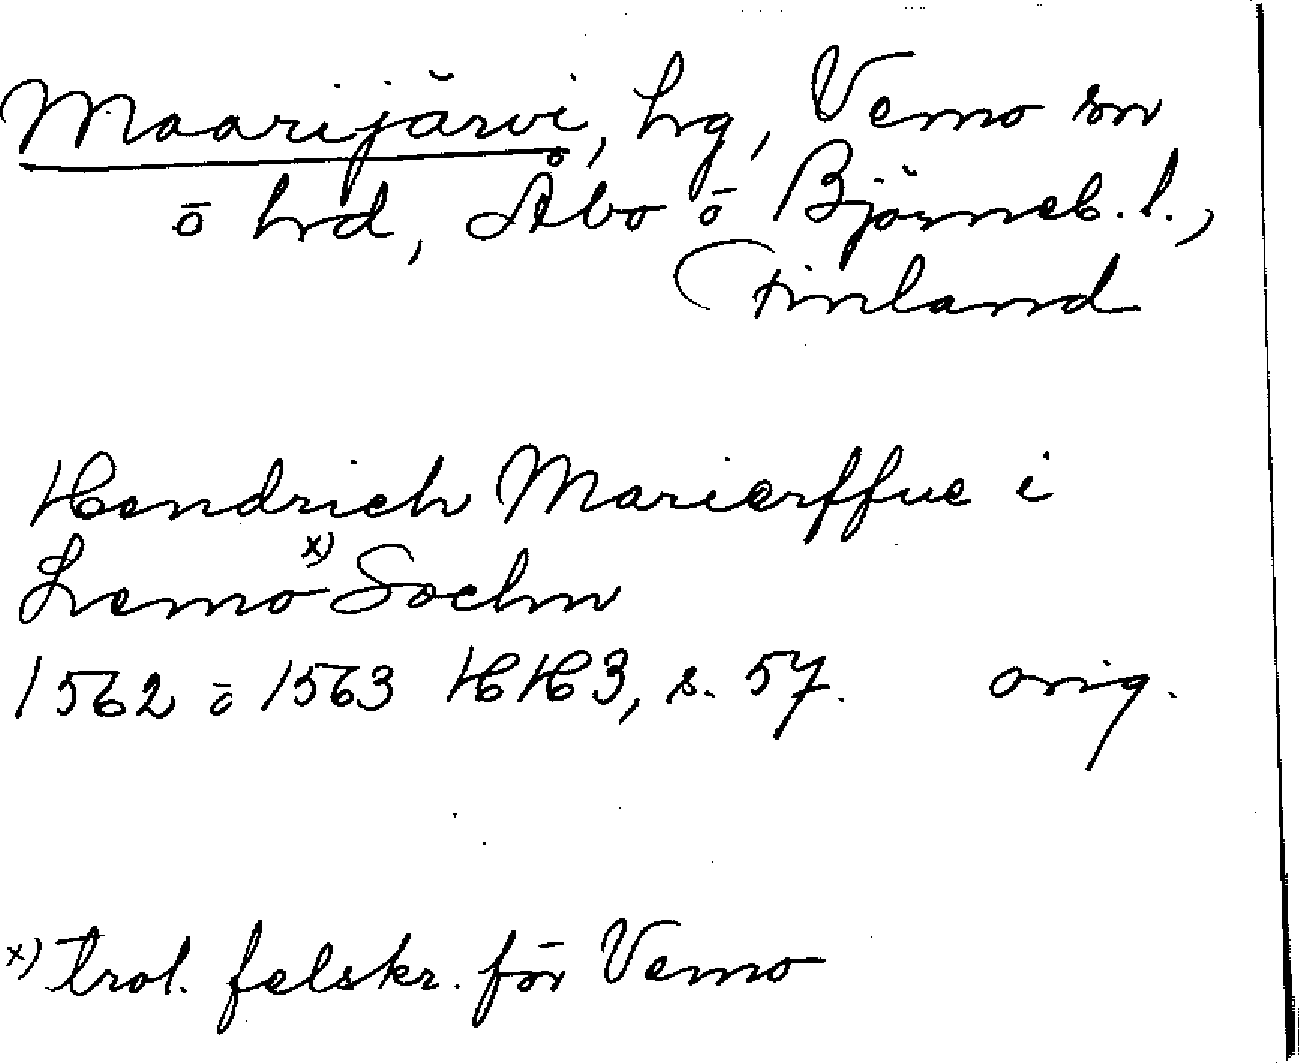 Maarijärvi, hg, Vemo sn
o hrd, Åbo o Björneb. l.,
Finland
Hendrich Marierffue i
Lemo x) Sochn
1562 o 1563 HH3, s. 57. orig.
x) trol. felskr. för Vemo